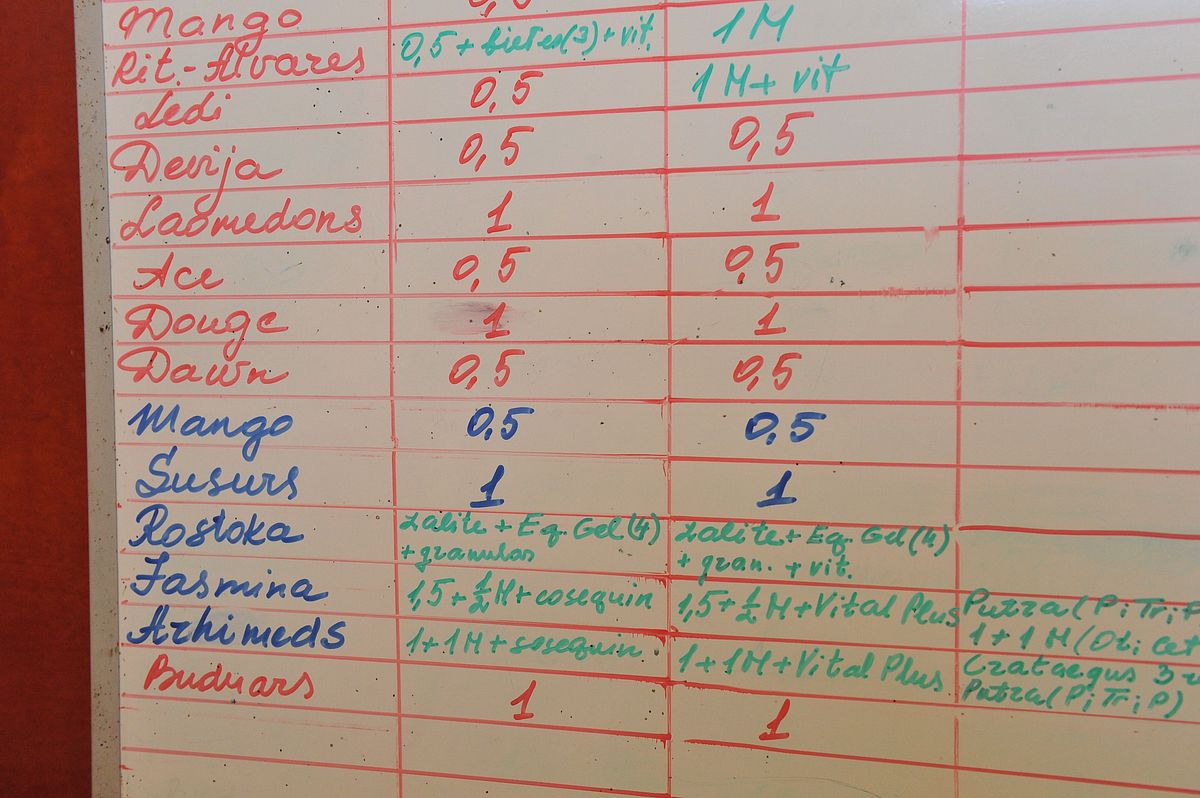 Mango
Rit.-Alvares 0,5 + bietes(3) + vit. 1M
Ledi 0,5 1M + vit
Devija 0,5 0,5
Laomedons 1 1
Ace 0,5 0,5
Douge 1 1
Dawn 0,5 0,5
Mango 0,5 0,5
Susurs 1 1
Rostoka zalite + Eq. Gel (4) zalite + Eq. Gel (4)
+ granulas + gran. + vit.
Jasmina 1,5 + ½ M + cosequin 1,5 + ½ M + Vital Plus Putra (P; Tr; P
Arhimeds 1 + 1M + sosequin 1 + 1M + Vital Plus 1 + 1 M (Ot; Cet
Crataegus 3
Buduars 1 1 Putra (P; Tr; P)